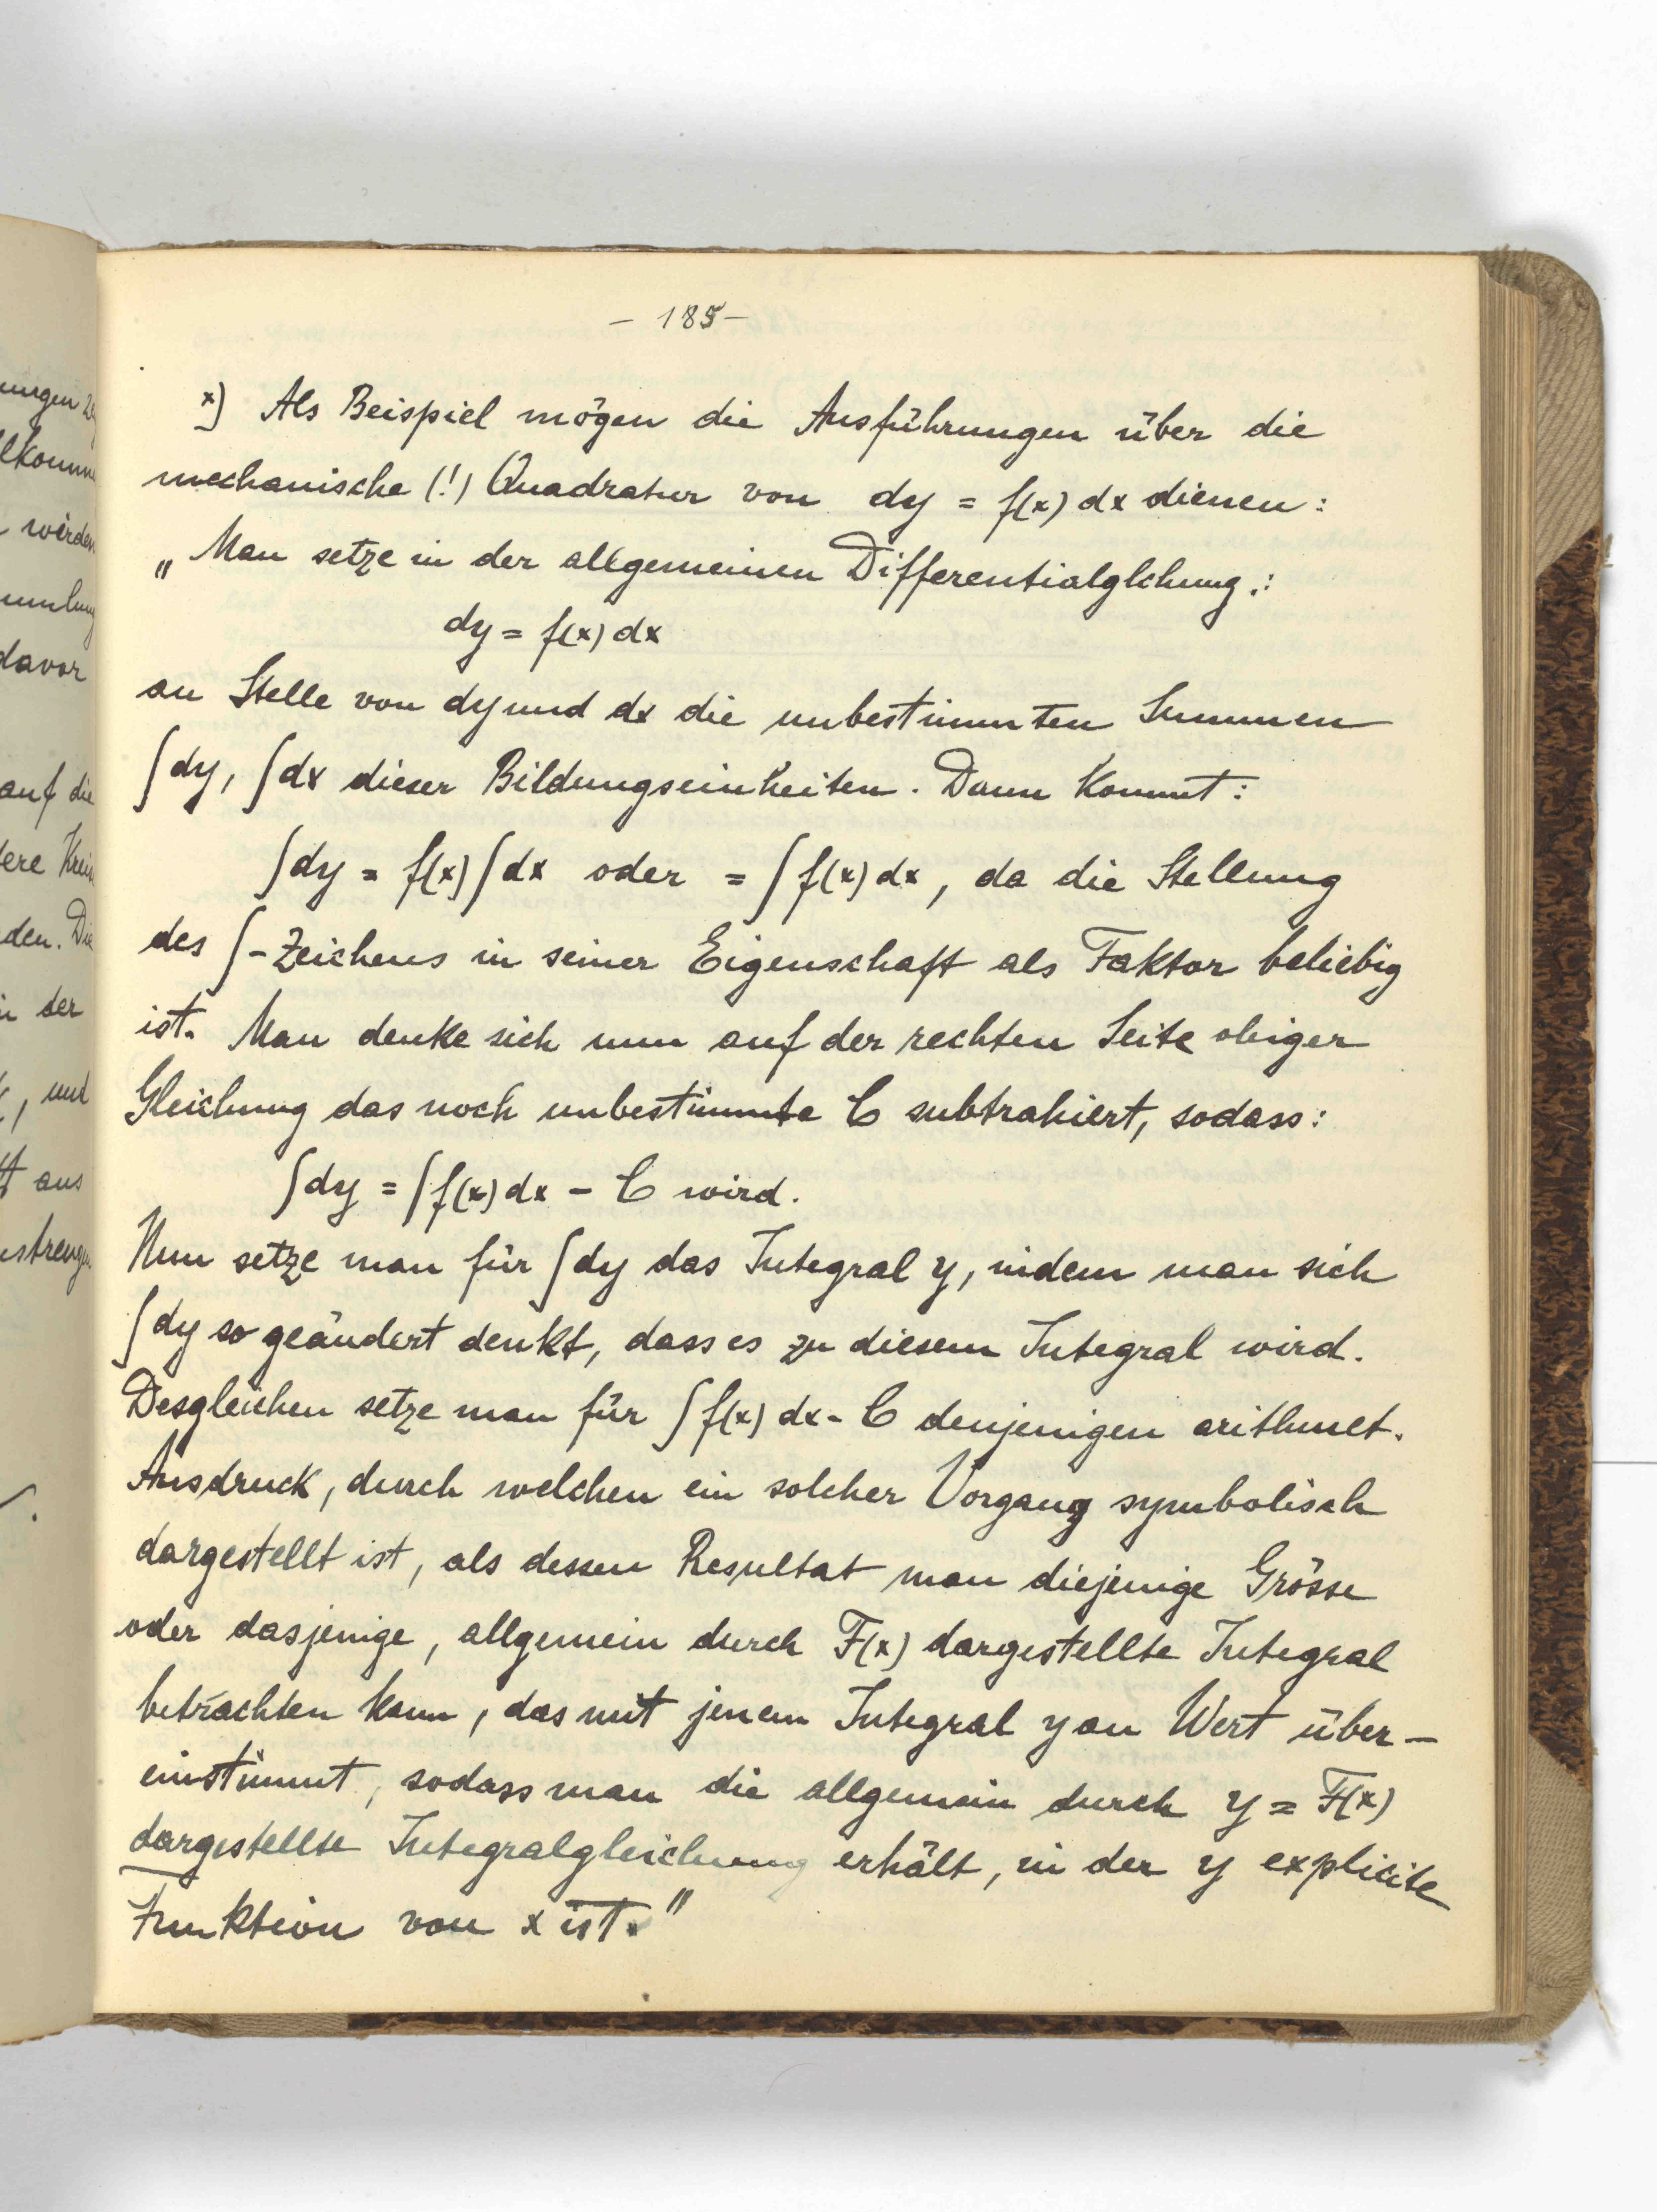 - 185 -
x) Als Beispiel mögen die Ausführungen über die
mechanische (!) Quadratur von dy = f(x) dx dienen:
„Man setze in der allgemeinen Differentialglchung.:
dy = f(x) dx
an Stelle von dy und dx die unbestimmten Summen
∫dy, ∫dx dieser Bildungseinheiten. Dann kommt:
∫dy = f(x)∫dx oder = ∫f(x) dx, da die Stellung
des ∫-Zeichens in seiner Eigenschaft als Faktor beliebig
ist. Man denke sich nun auf der rechten Seite obiger
Gleichung das noch unbestimmte C subtrahiert, sodass:
∫dy = ∫f(x) dx - C wird.
Nun setze man für ∫dy das Integral y, indem man sich
∫dy so geändert denkt, dass es zu diesem Integral wird.
Desgleichen setze man für ∫f(x) dx - C denjenigen arithmet.
Ausdruck, durch welchen ein solcher Vorgang symbolisch
dargestellt ist, als dessen Resultat man diejenige Grösse
oder dasjenige, allgemein durch F(x) dargestellte Integral
betrachten kann, das mit jenem Integral y an Wert über-
einstimmt, sodass man die allgemein durch y = F(x)
dargestellte Integralgleichung erhält, in der y explicite
Funktion von x ist."
auf die
den. Die
davor
und
aus